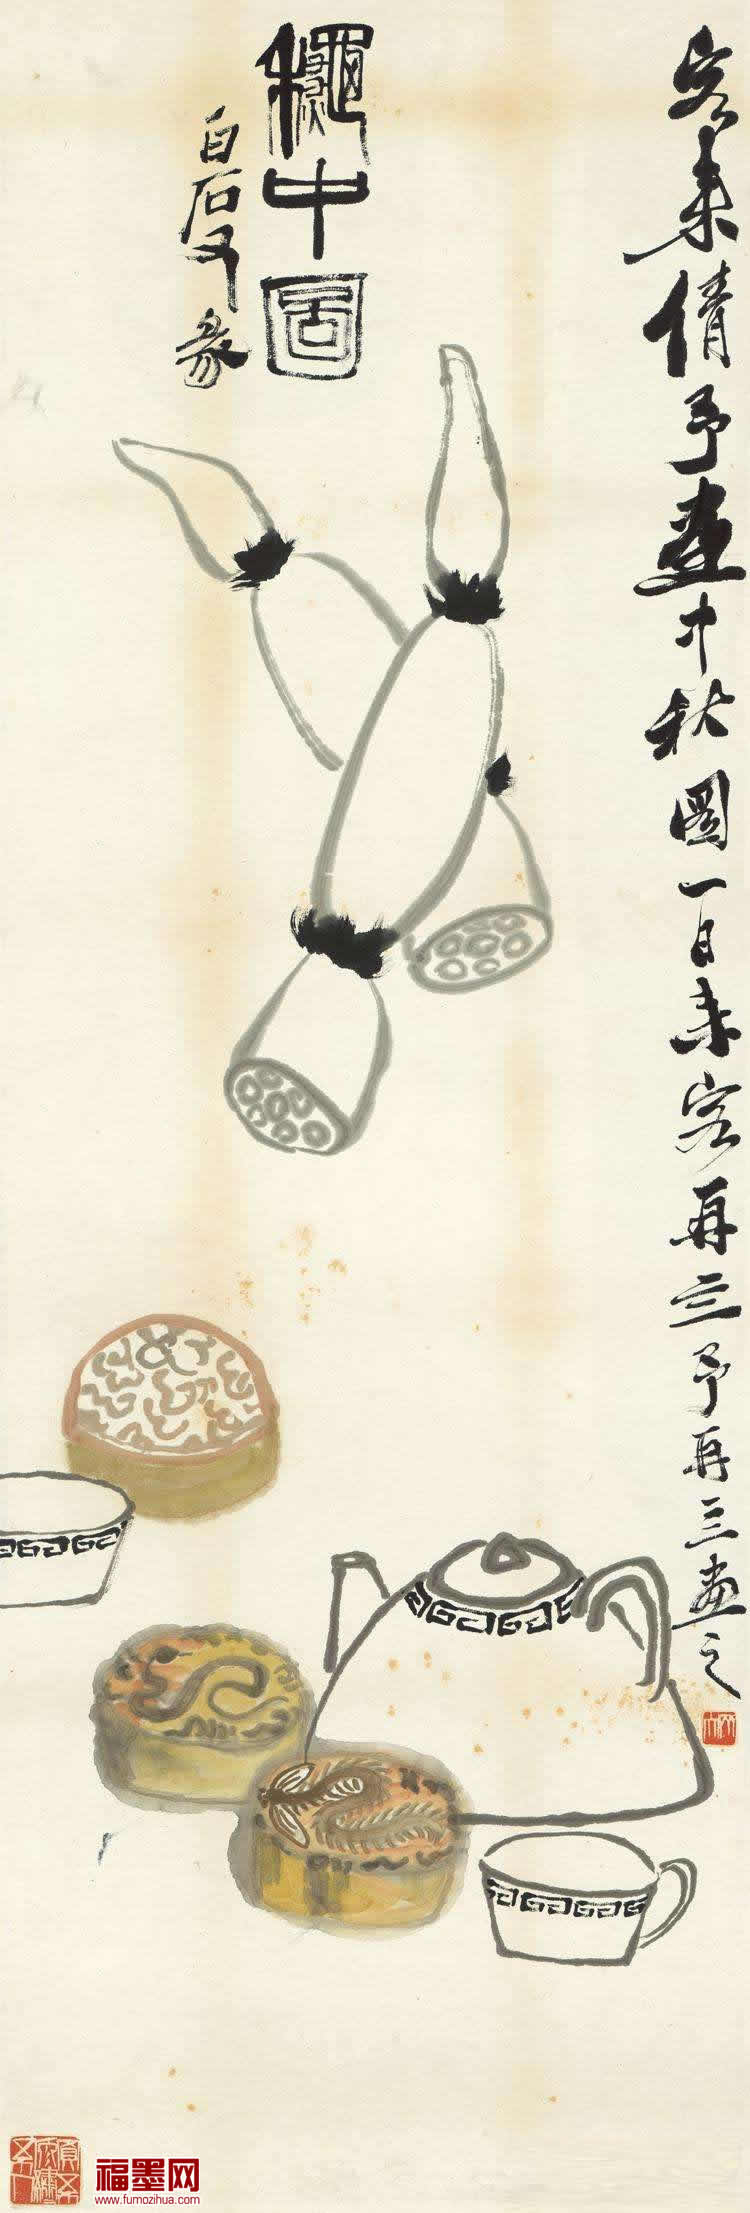 客来倩予畫中秋圖一日来客再三予再三畫之
龝中圖
白石又篆
福墨网
www.fumozihua.com